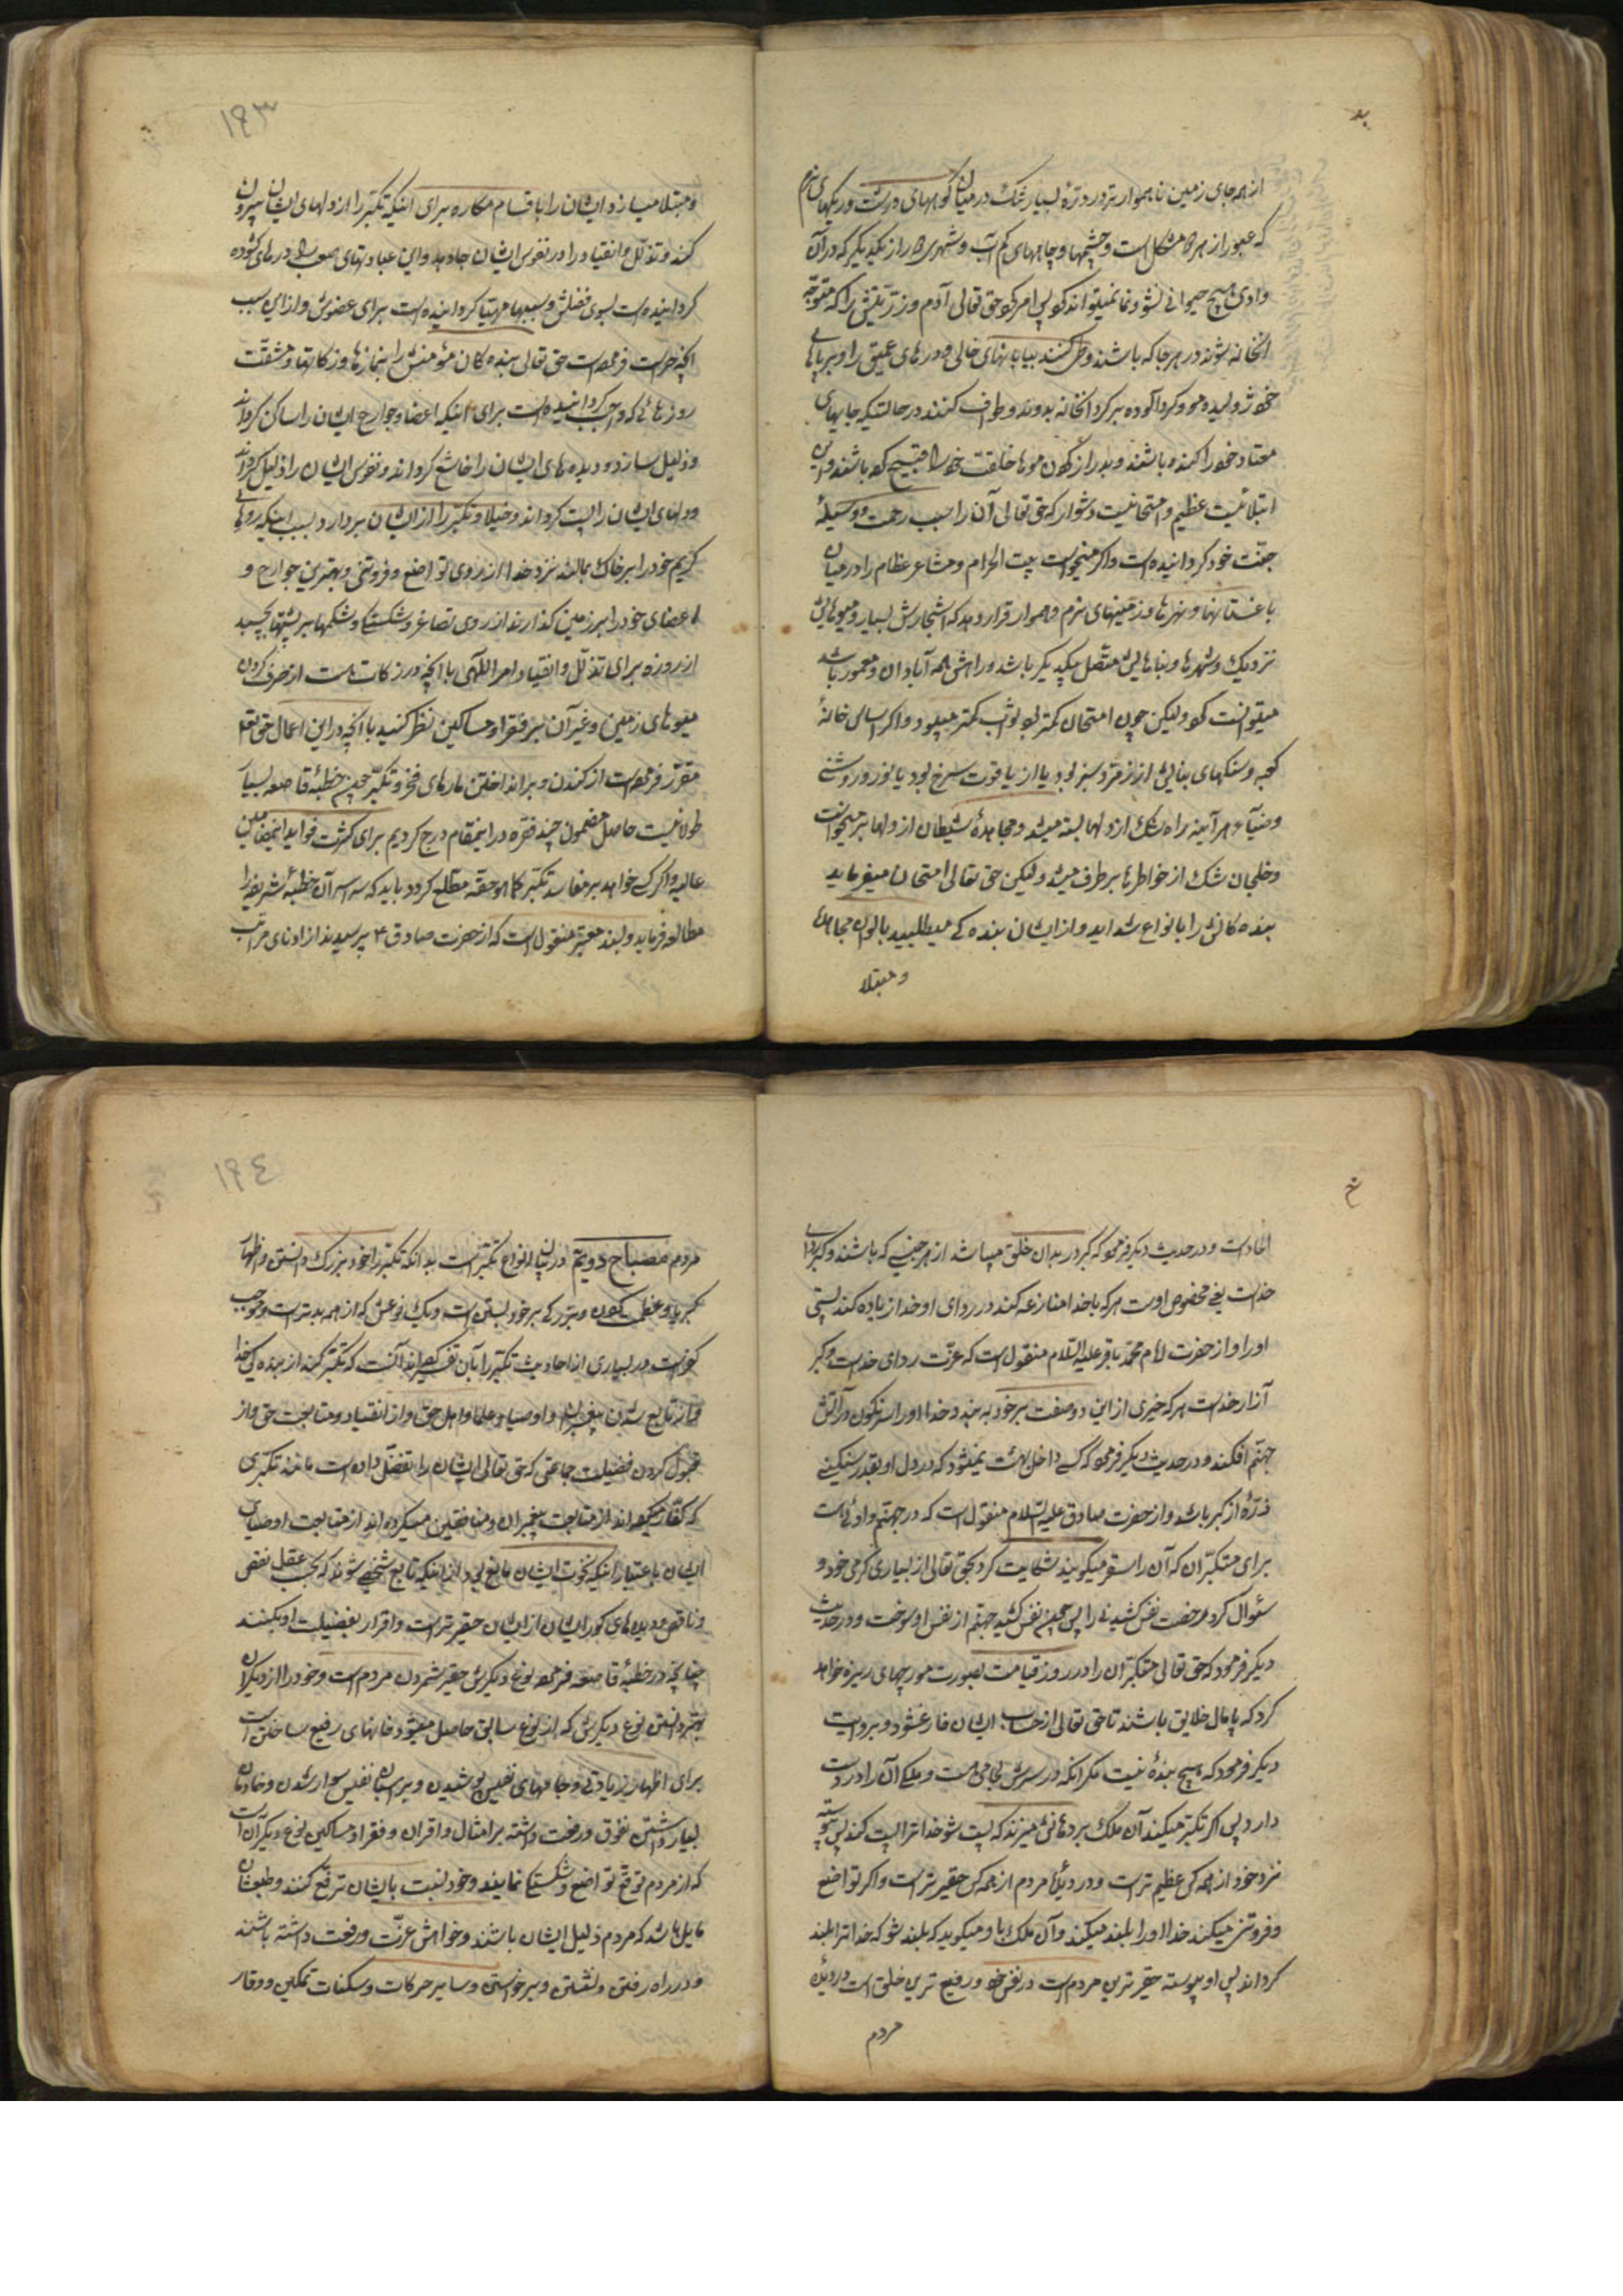 از همه جای زمین ناهموارتر در درّهٔ بسیار تنگ در میان کوههای درشت و ریگهای نرم
که عبور از همه مشکل است و چشمها و چاههای کم آب و شهرها از یکدیگر که در آن
وادی هیچ حیوانی نشو و نما نمیتواند کرد پس امر کرد حق تعالی آدم و ذرّیتش را که متوجّه
آنخانه شوند در هر جا که باشند و طی کنند بیابانهای خالی و درهای عمیق را و بر پاهای
خود ژولیده مو و گردآلوده بر گرد آنخانه بدوند و طواف کنند در حالتیکه جامهای
معتاد خود را کنده باشند و بدراز کردن موها خلقت خود را قبیح کرده باشند و این
ابتلائیست عظیم و امتحانیست دشوار که حق تعالی آن را سبب رحمت و وسیلهٔ
جنّت خود گردانیده است و اگر میخواست بیت الحرام و مشاعر عظام را در میان
باغستانها و نهرها و زمینهای نرم و هموار قرار دهد که اشجارش بسیار و میوهایش
نزدیک و شهرها و بناهایش متّصل بیکدیگر باشد و راهش همه آبادان و معمور باشد
میتوانست کرد ولیکن چون امتحان کمتر بود ثواب کمتر میبود و اگر اساس خانهٔ
کعبه و سنگهای بنایش از زمرّد سبز بود یا از یاقوت سرخ بود یا نور و روشنی
و ضیآء هر آینه راه شک از دلها بسته میشد و مجاهدهٔ شیطان از دلها برمیخواست
و خلجان شک از خاطرها برطرف میشد ولیکن حق تعالی امتحان میفرماید
بنده کانش را بانواع شداید و از ایشان بنده کی میطلبد بالوان مجاهدها
و مبتلا
۱۹۳
و مبتلا میسازد ایشان را باقسام مکاره برای اینکه تکبّر را از دلهای ایشان بیرون
کند و تذلّل و انقیاد را در نفوس ایشان جا دهد و این عبادتهای صعب را درهای گشوده
گردانیده است بسوی فضلش و سببها مهیّا گردانیده است برای عفوش و از این سبب
آنچه حراست فرموده است حق تعالی بنده کان مؤمنش را بنمازها و زکاتها و مشقّت
روزهائی که واجب گردانیده است برای اینکه اعضا و جوارح ایشان را ساکن گرداند
و ذلیل سازد و دیده های ایشان را خاشع گرداند و نفوس ایشان را ذلیل گرداند
و دلهای ایشان را پست گرداند و خیلا و تکبّر را از ایشان بردارد بسبب اینکه روهای
کریم خود را بر خاک بمالند نزد خدا از روی تواضع و فروتنی و بهترین جوارح و
اعضای خود را بر زمین گذارند از روی تصاغر و شکستگی و شکمها بر پشتها بچسبد
از روزه برای تذلّل و انقیاد امر اللهی با آنچه در زکات هست از صرف کردن
میوهای زمین و غیر آن بر فقرا و مساکین نظر کنید با آنچه در این اعمال حق تعالی
مقرّر فرموده است از کندن و برانداختن مارهای فخر و تکبّر چون خطبهٔ قاصعه بسیار
طولانیست حاصل مضمون چند فقره در اینمقام درج کردیم برای کثرت فواید اینمضامین
عالیه و اگر کسی خواهد بر مفاسد تکبّر کما هو حقّه مطّلع گردد باید که سراسر آن خطبهٔ شریفه را
مطالعه فرماید و بسند معتبر منقول است که از حضرت صادق ع پرسیدند از ادنای مراتب
الحاد است و در حدیث دیگر فرمود که کبر در بدان خلق میباشد از هر جنسی که باشند و کبر ردای
خداست یعنی مخصوص اوست هر که با خدا منازعه کند در ردای او خدا زیاده کند پستی
او را و از حضرت امام محمّد باقر علیه السّلام منقول است که عزّت ردای خداست و کبر
آزار خداست هر که چیزی از این دو صفت بر خود به بندد خدا او را سرنگون در آتش
جهنّم افکند و در حدیث دیگر فرمود که کسی داخل بهشت نمیشود که در دل او بقدر سنگینی
ذرّهٔ از کبر باشد و از حضرت صادق علیه السّلام منقول است که در جهنّم وادئی است
برای متکبّران که آن را سقر میگویند شکایت کرد بحق تعالی از بسیاری گرمی خود و
سئوال کرد رخصت نفس کشیدنی را پس چون نفس کشید جهنّم از نفس او سوخت و در حدیث
دیگر فرمود که حق تعالی متکبّران را در روز قیامت بصورت مورچهای ریزه خواهد
کرد که پامال خلایق باشند تا حق تعالی از حساب ایشان فارغ شود و بروایت
دیگر فرمود که هیچ بندهٔ نیست مگر آنکه در سرش لجامی هست و ملکی آن را در دست
دارد پس اگر تکبّر میکند آن ملک بر دهانش میزند که پست شو خدا ترا پست کند پس پیوسته
نزد خود از همه کس عظیم تر است و در دیدهٔ مردم از همه کس حقیر تر است و اگر تواضع
و فروتنی میکند خدا او را بلند میکند و آن ملک باو میگوید که بلند شو که خدا ترا بلند
گرداند پس او پیوسته حقیر ترین مردم است در نفس خود و رفیع ترین خلق است در دیدهٔ
مردم
۱۹٤
مردم مصباح دویّم در بیان انواع تکبّر است بدانکه تکبّر را خود بزرگ دانستن و اظهار
کبریا و عظمت کردن و بزرگی بر خود بستن است و یک نوعش که از همه بدتر است و موجب
کفر است و در بسیاری از احادیث تکبّر را بآن تفسیر کرده اند آنست که تکبّر کند از بنده کی خدا
و از تابع شدن پیغمبران و اوصیا و علما و اهل حق و از انقیاد و متابعت حق و از
قبول کردن فضیلت جماعتی که حق تعالی ایشان را تفضّل داده است مانند تکبّری
که کفّار میکرده اند از متابعت پیغمبران و منافقین میکرده اند از متابعت اوصیای
ایشان باعتبار اینکه نخوت ایشان مانع بود از اینکه تابع شخصی شوند که بحسب عقل نقص
و ناقص و دیده های کور ایشان از ایشان حقیر تر است و اقرار بفضیلت او بکنند
چنانچه در خطبهٔ قاصعه فرموده نوع دیگرش حقیر شمردن مردم است و خود را از دیگران
بهتر دانستن نوع دیگرش که از نوع سابق حاصل میشود خانهای رفیع ساختن است
برای اظهار زیادتی و جامهای نفیس پوشیدن و بر اسبان نفیس سوار شدن و خادمان
بسیار داشتن تفوّق و رفعت داشته بر امثال و اقران و فقرا و مساکین نوع دیگر آن است
که از مردم توقّع تواضع و شکستگی نمایند و خود نسبت بایشان ترفّع کنند و طبعشان
مایل باشد که مردم ذلیل ایشان باشند و خواهش عزّت و رفعت داشته باشند
و در راه رفتن و نشستن و برخواستن و سایر حرکات و سکنات تمکین و وقار